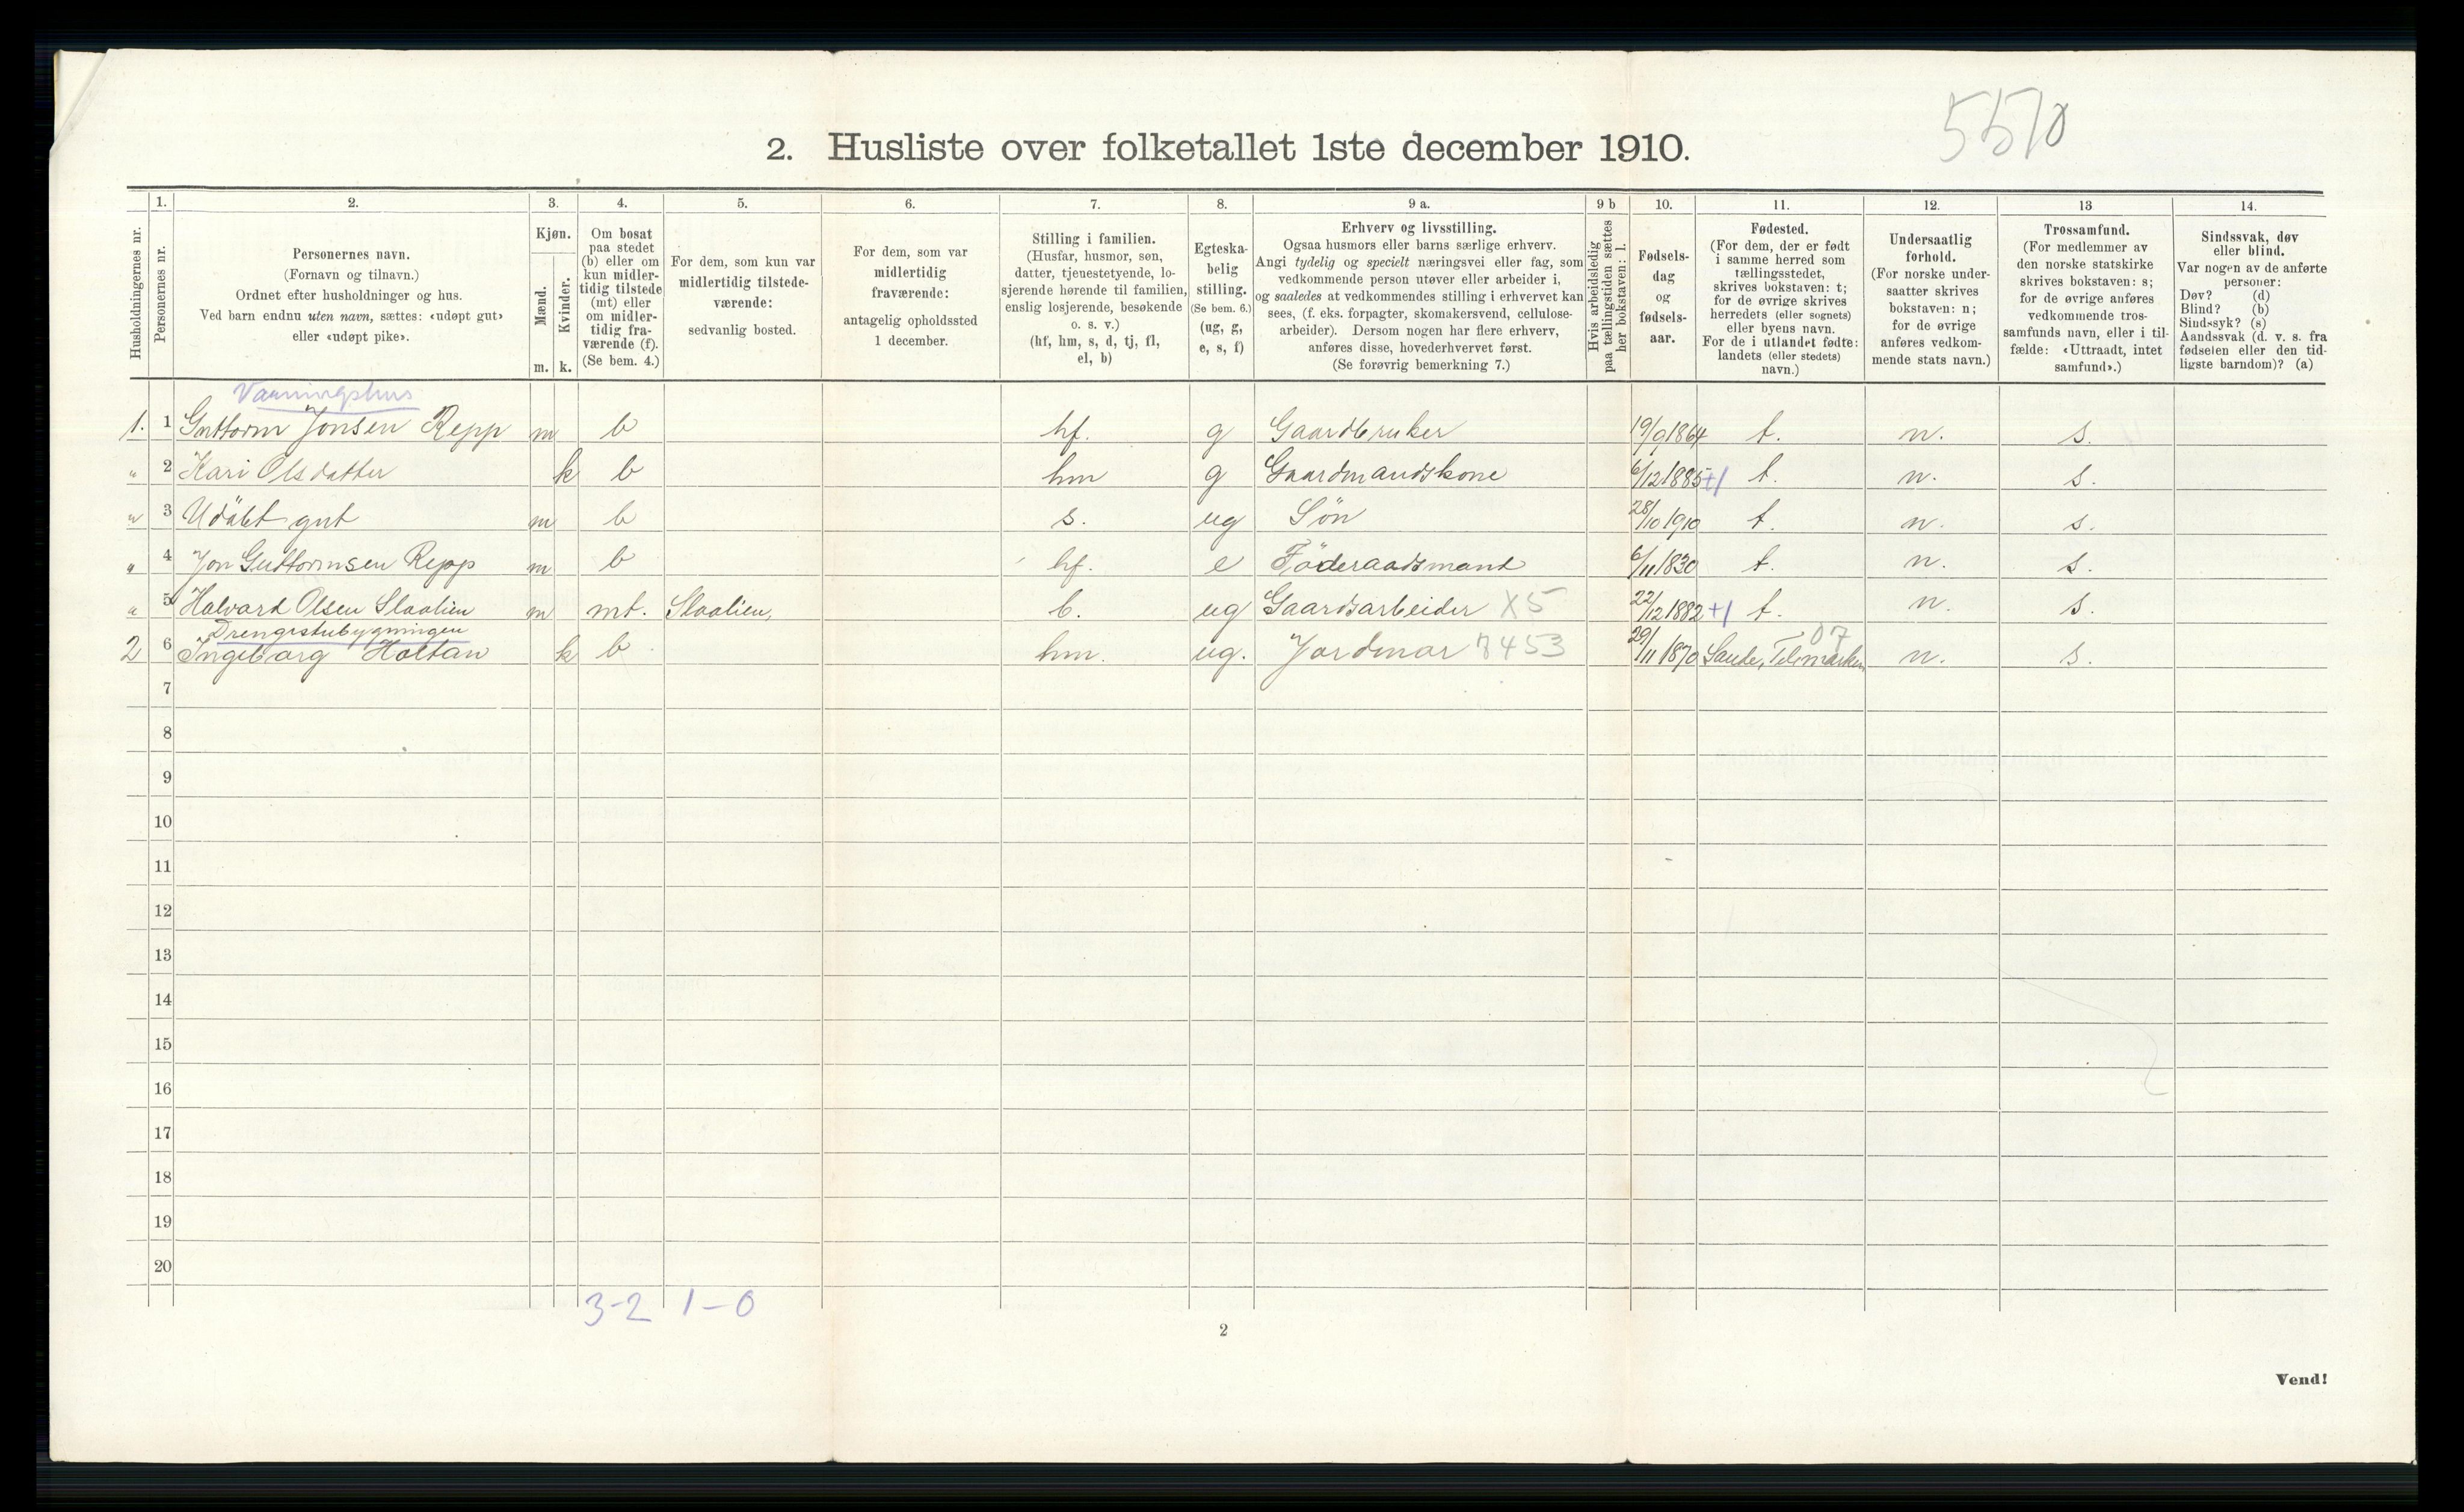 5510
2. Husliste over folketallet 1ste december 1910.
Husholdningernes nr.
1.
Personernes nr.
2.
Personernes navn.
(Fornavn og tilnavn.)
Ordnet efter husholdninger og hus.
Ved barn endnu uten navn, sættes: «udøpt gut»
eller «udøpt pike».
3.
Kjøn.
Mænd.
Kvinder.
m. k.
4.
Om bosat
paa stedet
(b) eller om
kun midler-
tidig tilstede
(mt) eller
om midler-
tidig fra-
værende (f).
(Se bem. 4.)
5.
For dem, som kun var
midlertidig tilstede-
værende:
sedvanlig bosted.
6.
For dem, som var
midlertidig
fraværende:
antagelig opholdssted
1 december.
7.
Stilling i familien.
(Husfar, husmor, søn,
datter, tjenestetyende, lo-
sjerende hørende til familien,
enslig losjerende, besøkende
o. s. v.)
(hf, hm, s, d, tj, fl,
el, b)
8.
Egteska-
belig
stilling.
(Se bem. 6.)
(ug, g,
e, s, f)
9 a.
Erhverv og livsstilling.
Ogsaa husmors eller barns særlige erhverv.
Angi tydelig og specielt næringsvei eller fag, som
vedkommende person utøver eller arbeider i,
og saaledes at vedkommendes stilling i erhvervet kan
sees, (f. eks. forpagter, skomakersvend, cellulose-
arbeider). Dersom nogen har flere erhverv,
anføres disse, hovederhvervet først.
(Se forøvrig bemerkning 7.)
9 b
Hvis arbeidsledig
paa tællingstiden sættes
her bokstaven: l.
10.
Fødsels-
dag
og
fødsels-
aar.
11.
Fødested.
(For dem, der er født
i samme herred som
tællingsstedet,
skrives bokstaven: t;
for de øvrige skrives
herredets (eller sognets)
eller byens navn.
For de i utlandet fødte:
landets (eller stedets)
navn.)
12.
Undersaatlig
forhold.
(For norske under-
saatter skrives
bokstaven: n;
for de øvrige
anføres vedkom-
mende stats navn.)
13
Trossamfund.
(For medlemmer av
den norske statskirke
skrives bokstaven: s;
for de øvrige anføres
vedkommende tros-
samfunds navn, eller i til-
fælde: «Uttraadt, intet
samfund».)
14.
Sindssvak, døv
eller blind.
Var nogen av de anførte
personer:
Døv? (d)
Blind? (b)
Sindssyk? (s)
Aandssvak (d. v. s. fra
fødselen eller den tid-
ligste barndom)? (a)
Vaaningshus
1. 1 Guttorm Jonsen Repp m b hf. g Gaardbruker 19/9 1864 t. n. s.
" 2 Kari Olsdatter k b hm g Gaardmandskone 6/12 1885 +1 t. n. s.
" 3 Udöbt gut m b s. ug Sön 28/10 1910 t. n. s.
" 4 Jon Guttormsen Repp m b hf. e Föderaadsmand 6/11 1830 t. n. s.
" 5 Halvard Olsen Slaalien m mt. Slaalien, b. ug Gaardsarbeider X5 22/12 1882 +1 t. n. s.
Drengestubygningen
2 6 Ingeborg Holtan k b hm. ug. Jordmor 7453 29/11 1870 Saude, Telemarken 07 n. s.
7
8
9
10
11
12
13
14
15
16
17
18
19
20
3-2 1-0
2
Vend!